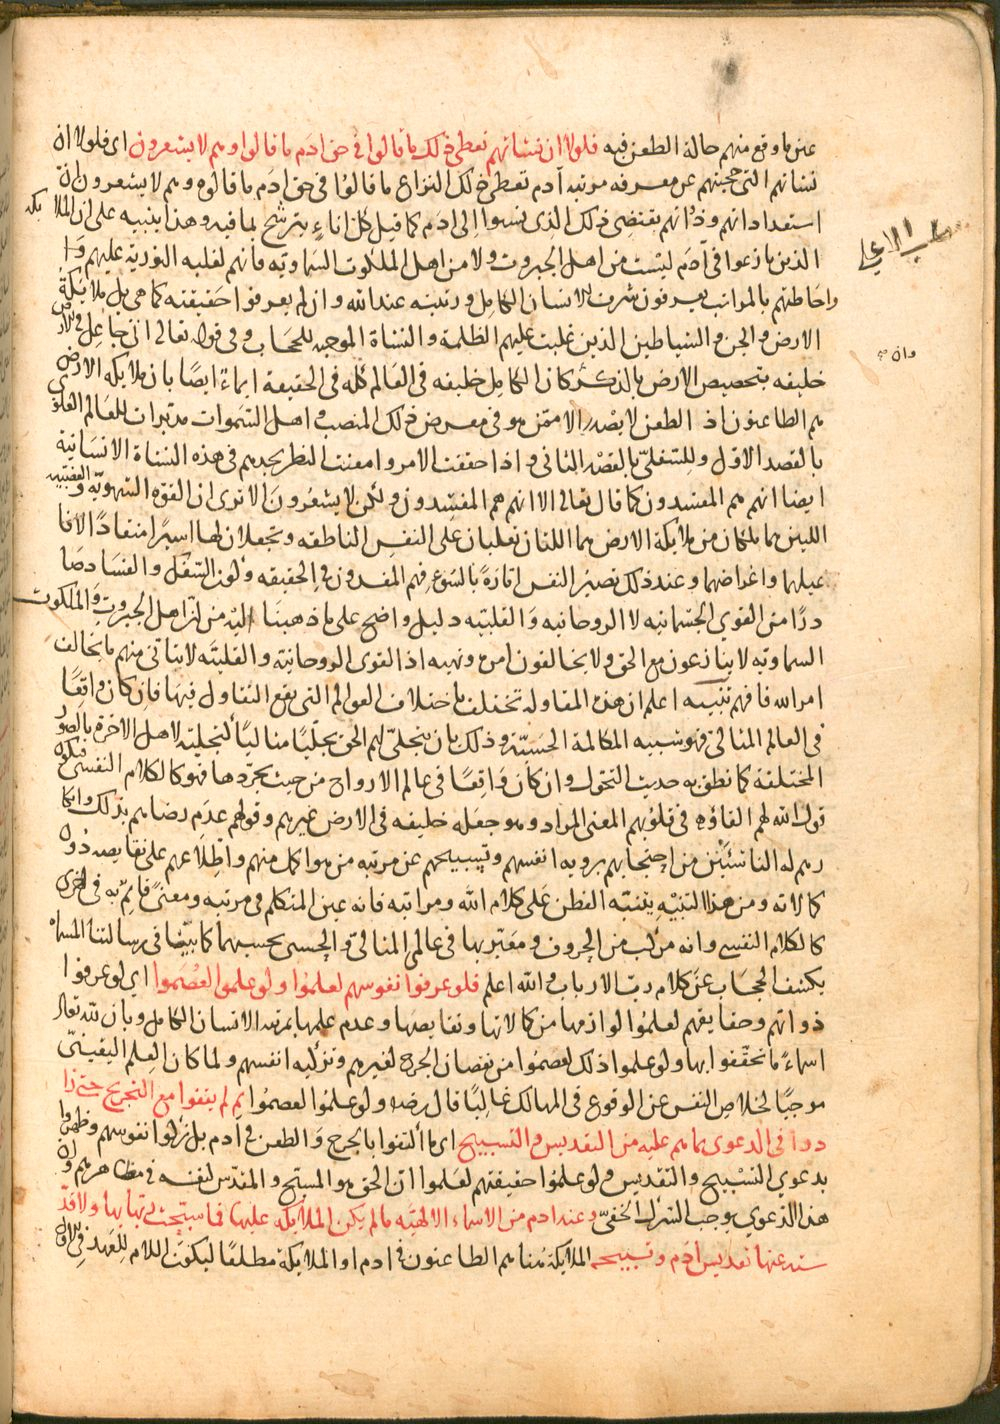 عين ما وقع منهم حالة الطعن فيه فلولا ان نشاتهم تعطي ذلك ما قالوا في حق ادم ما قالوا وهم لا يشعرون اى فلولا ان
نشاتهم التي حجبتهم عن معرفه مرتبه آدم تعطي ذلك النزاع ما قالوا في حق ادم ما قالوه وهم لا يشعرون ان
استعداداتهم وذواتهم تقتضى ذلك الذى نسبوا الى ادم كما قيل كل اناء يترشح لما فيه وهذا ينبيه على ان الملايكه
الذين نازعوا في آدم ليست من اهل الجبروت ولا من اهل الملكوت السماوية فانهم لغلبه النورية عليهم وا
واحاطتهم بالمراتب يعرفون شرف الانسان الكامل ورتبته عند الله وان لم يعرفوا حقيقته كما هي بل ملايكة
الارض والجن والشياطين الذين غلبت عليهم الظلمة والنشاة الموجبه للحجاب وفي قوله تعالى انى جاعل في الارض
خليفه بتخصيص الارض بالذكر وان كان الكامل خليفه في العالم كله في الحقيقة ايماء ايضا بان ملايكه الارض
هم الطاعنون اذ الطعن لا يصدر الا ممن هو في معرض ذلك المنصب و اهل السموات مدبرات للعالم العلوى
بالقصد الاول وللسفلى بالقصد الثاني واذا حققت الامر وامعنت النظر يجدهم في هذه النشاة الانسانية
ايضا انهم هم المفسدون كما قال تعالى الا انهم هم المفسدون ولكن لا يشعرون الا ترى ان القوه الشهويه والغضبيه
اللتين هما ملكان من ملايكة الارض هما اللتان تغلبان على النفس الناطقه وتجعلان لها اسيرا منقادا لافا
عيلهما واغراضهما وعند ذلك تصير النفس امارة بالسوء فهم المفسدون في الحقيقه وكون السفك والفساد صا
درا من القوى الجسمانيه لا الروحانيه والقلبيه دليل واضح على ما ذهبنا اليه من ان اهل الجبروت والملكوت
السماويه لا يتنازعون مع الحق ولا يخالفون امره ونهيه اذ القوى الروحانية والقلبية لا يتاتى منهم ما يخالف
امر الله فافهم تنبيه اعلم ان هذه المقاوله تختلف باختلاف العوالم التي يقع التقاول فيها فان كان واقعا
في العالم المثالي فهو شبيه المكالمة الحسية وذلك بان يتجلى لهم الحق تجليا مثاليا كتجليه لاهل الاخرة بالصور
المختلفة كما نطق به حديث التحول وان كان واقعا في عالم الارواح من حيث تجردها فهو كالكلام النفسى فيكون
قول الله لهم القاؤه في قلوبهم المعنى المراد وهو جعله خليفه في الارض غيرهم وقولهم عدم رضاهم بذلك وانكا
رهم له الناشئين من احتجابهم برويه انفسهم وتسبيحهم عن مرتبه من هو اكمل منهم واطلاعهم على نقايصه دون
كمالاته ومن هذا التنبيه يتنبه الفطن على كلام الله ومراتبه فانه عين المتكلم في مرتبه ومعنى قايم به في اخرى
كالكلام النفسى وانه مركب من الحروف ومعبر بها في عالمى المثالي والحسى بحسبهما كما بينا في رسالتنا المسماه
بكشف الحجاب عن كلام رب الارباب والله اعلم فلو عرفوا نفوسهم لعلموا ولو علموا لعصموا اى لو عرفوا
ذواتهم وحقايقهم لعلموا لوازمها من كمالاتها ونقايصها وعدم علمها بمرتبه الانسان الكامل وبان لله تعالى
اسماء ما تحققوا بها ولو علموا ذلك لعصموا من نقصان الجرح لغيرهم وتزكيه انفسهم ولما كان العلم اليقينى
موجبا لخلاص النفس عن الوقوع في المهالك غالبا قال رضه ولو علموا لعصموا ثم لم يقفوا مع التجريح حتى زا
دوا في الدعوى بما هم عليه من التقديس والتسبيح اى ما اكتفوا بالجرح والطعن في ادم بل زكوا نفوسهم وظهروا
بدعوى التسبيح والتقديس ولو علموا حقيقتهم لعلموا ان الحق هو المسبح والمقدس لنفسه في مظاهرهم وان
هذا الدعوى يوجب الشرك الخفى وعند ادم من الاسماء الالهيه ما لم يكن الملايكه عليها فما سبحت ربها بها ولا قد
سته عنها تقديس ادم وتسبيحه الملايكة هنا هم الطاعنون في ادم او الملايكة مطلقا ليكون اللام للعهد في الاول
وان صح